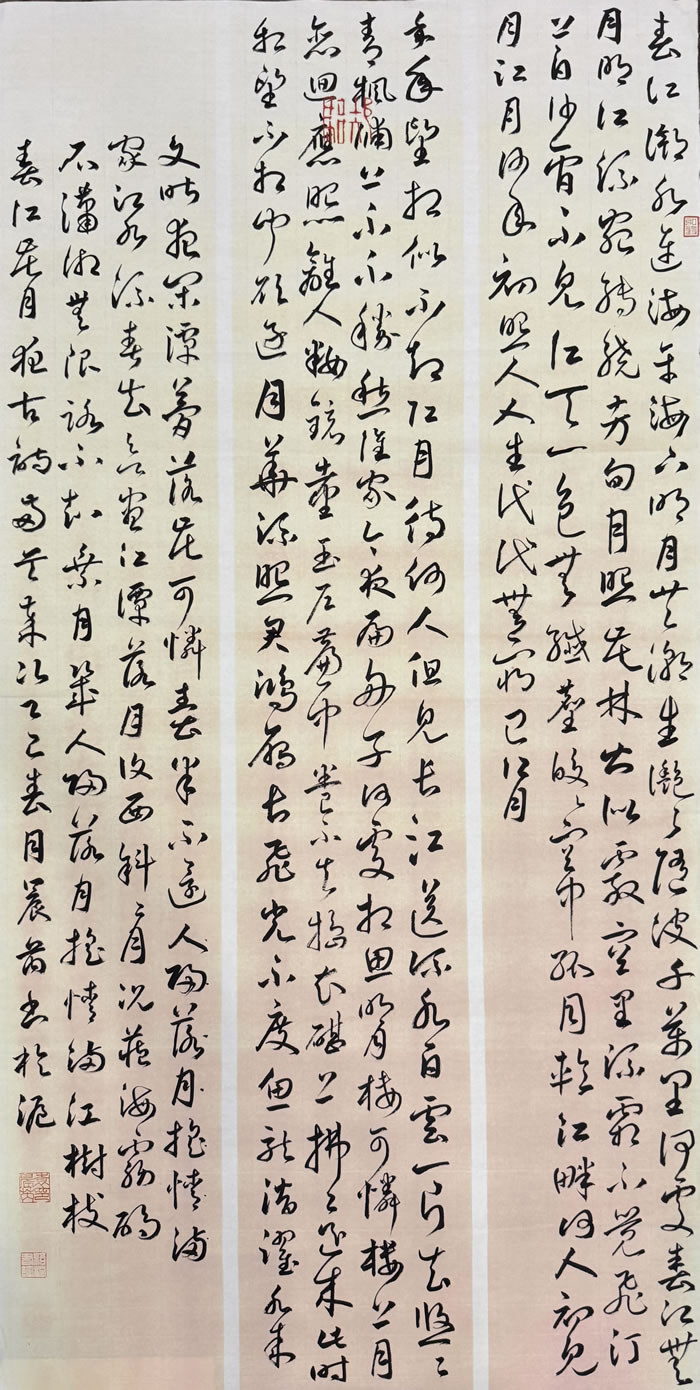 春江潮水連海平海上明月共潮生灩灩隨波千萬里何處春江無
月明江流宛轉繞芳甸月照花林皆似霰空里流霜不覺飛汀
上白沙看不見江天一色無纖塵皎皎空中孤月輪江畔何人初見
月江月何年初照人人生代代無窮已江月
年年望相似不知江月待何人但見長江送流水白雲一片去悠悠
青楓浦上不不勝愁誰家今夜扁舟子何處相思明月樓可憐樓上月
迴應照離人粧鏡臺玉戶簾中卷不去搗衣砧上拂拂還來此時
相望不相聞願逐月華流照君鴻雁長飛光不度魚龍潛躍水成
文昨夜閑潭夢落花可憐春半不還人歸落月搖情滿
家江水流春去欲盡江潭落月復西斜斜月沉藏海霧碣
石瀟湘無限路不知乘月幾人歸落月搖情滿江樹
春江花月夜古詩歲次乙巳春月晨芮書於滬